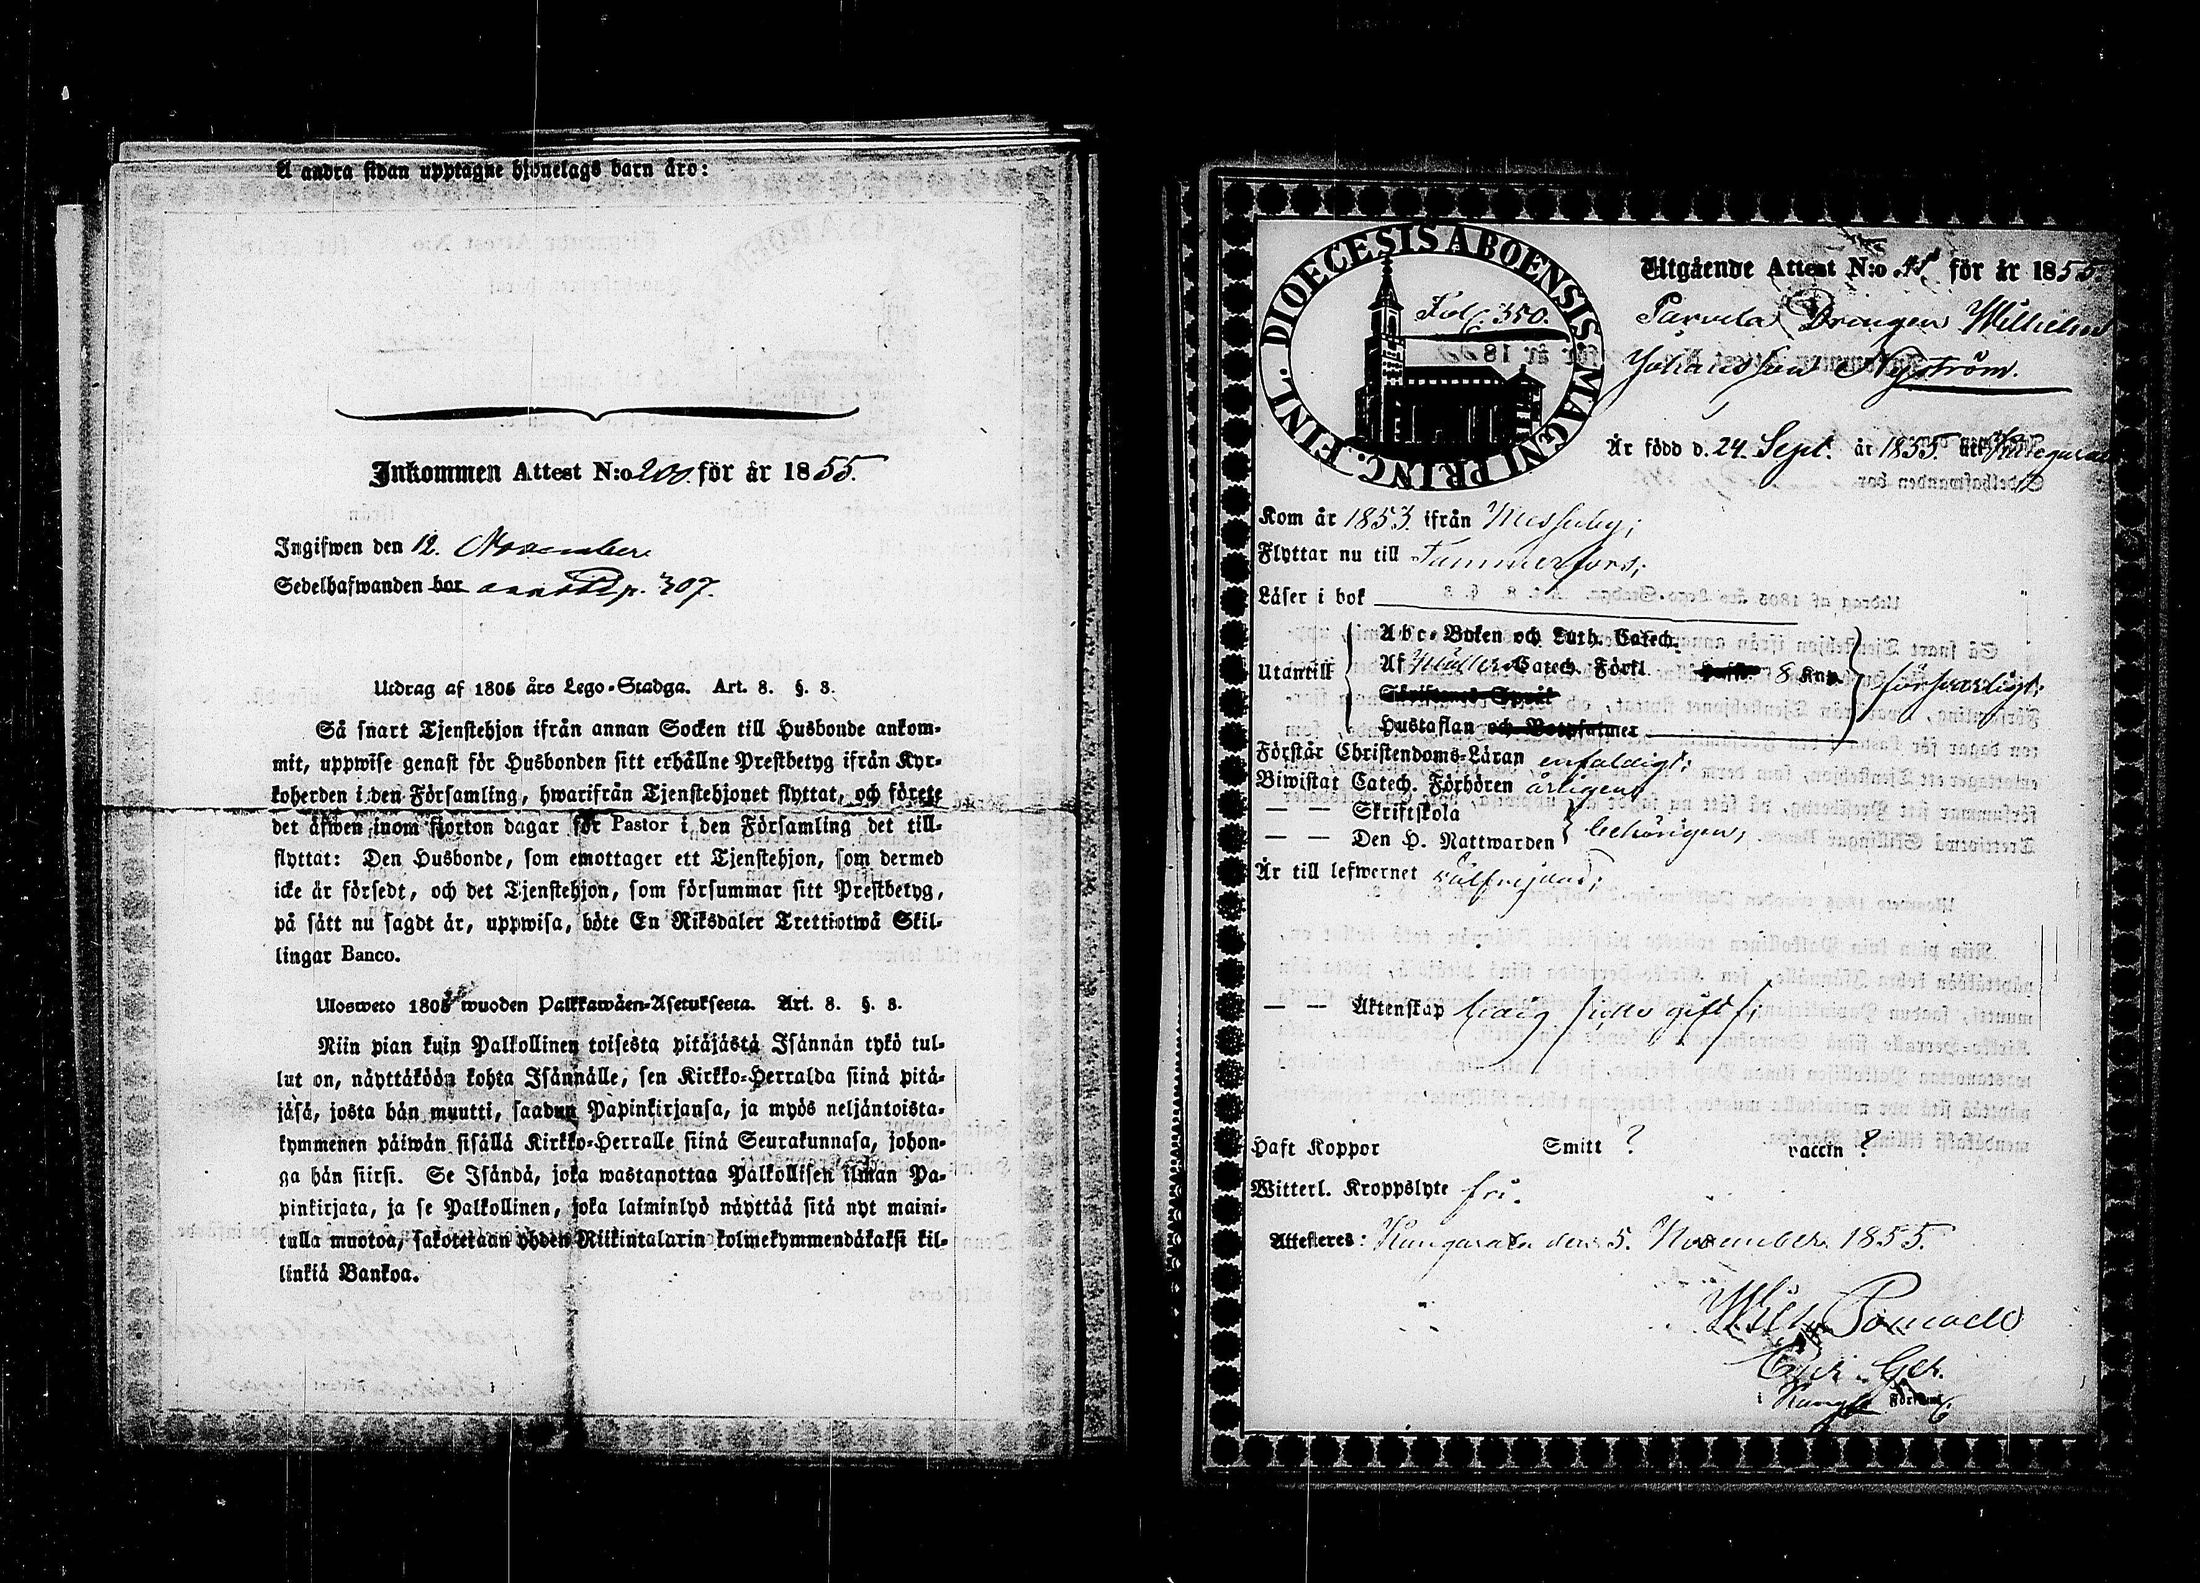 Å andra sidan upptagne hjonelags barn äro:
Inkommen Attest N:o 200. för år 1855.
Ingifwen den 12. November
Sedelhafwanden bor p. 307.
Utdrag af 1805 års Lego-Stadga. Art. 8. §. 3.
Så snart Tjenstehjon ifrån annan Socken till Husbonde ankom-
mit, uppwise genast för Husbonden sitt erhållne Prestbetyg ifrån Kyr-
koherden i den Församling, hwarifrån Tjenstehjonet flyttat, och förete
det äfwen inom fjorton dagar för Pastor i den Församling det till-
flyttat: Den Husbonde, som emottager ett Tjenstehjon, som dermed
icke är försedt, och det Tjenstehjon, som försummar sitt Prestbetyg,
på sätt nu sagdt är, uppwisa, böte En Riksdaler Trettiotwå Skil-
lingar Banco.
Ulosweto 1805 wuoden Palkkawäen-Asetuksesta. Art. 8. §. 3.
Niin pian kuin Palkollinen toisesta pitäjästä Isännän tykö tul-
lut on, näyttäköön kohta Isännälle, sen Kirkko-Herralda siinä pitä-
jäsä, josta hän muutti, saadun Papinkirjansa, ja myös neljäntoista-
kymmenen päiwän sisällä Kirkko-Herralle siinä Seurakunnasa, johon-
ga hän siirsi. Se Isändä, joka wastanottaa Palkollisen ilman Pa-
pinkirjata, ja se Palkollinen, joka laiminlyö näyttää sitä nyt maini-
tulla muotoa, sakotetaan yhden Riikintalarin kolmekymmendäkaksi kil-
linkiä Bankoa.
DIOECESIS ABOENSIS. MAGNI PRINC. FINL.
Fol. 350.
Utgående Attest N:o för år 1855.
Parvela Drängen Wilhelm
Johansson Nyström.
Är född d. 24. Sept. år 1835. uti
Kom år 1853. ifrån Messuby;
Flyttar nu till Tammerfors;
Läser i bok
Utantill
Abc-Boken och Luth. Catech.
Af Möllers Catech. Förkl. 8 Kap.
Skriftenes Språk
Hustaflan och Botpsalmer
försvarligt;
Förstår Christendoms-Läran enfaldigt;
Biwistat Catech. Förhören årligen
— — Skriftskola
— — Den H. Nattwarden behörigen;
Är till lefwernet välfrejdad;
— — Äktenskap ledig /icke gift/;
Haft Koppor Smitt ? vaccin ?
Witterl. Kroppslyte fri.
Attesteres: Kangasala den 5. November 1855.
Wilh.
i Församl.